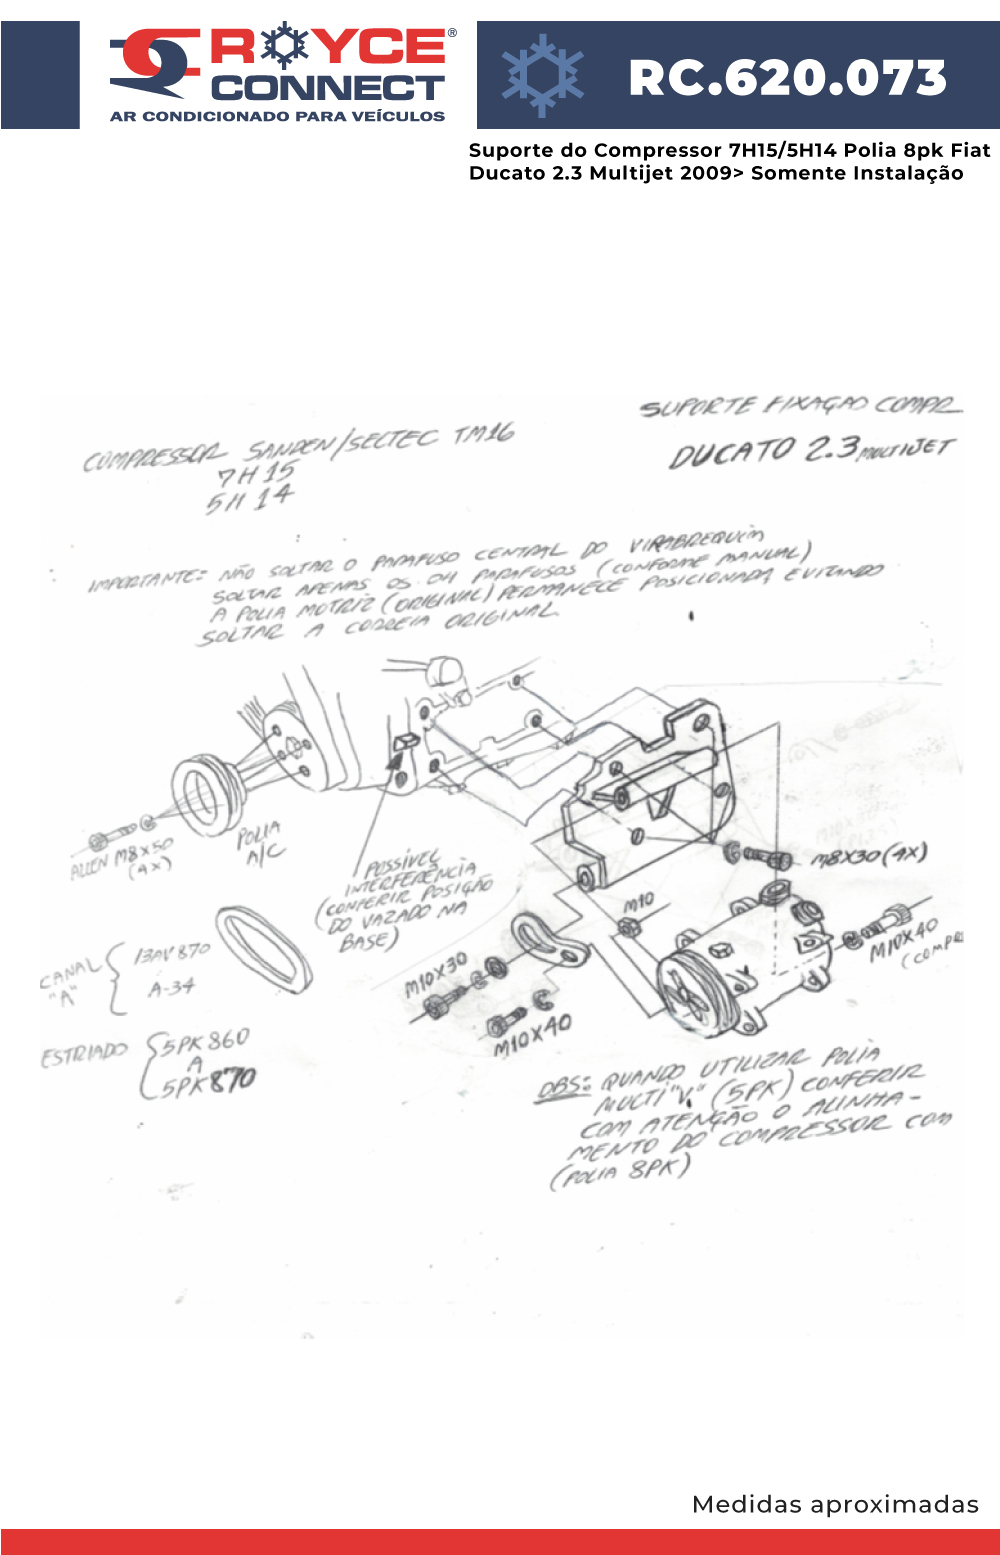 ROYCE®
CONNECT
AR CONDICIONADO PARA VEÍCULOS
RC.620.073
Suporte do Compressor 7H15/5H14 Polia 8pk Fiat
Ducato 2.3 Multijet 2009> Somente Instalação
SUPORTE FIXAÇÃO COMPR
DUCATO 2.3 MULTIJET
COMPRESSOR SANDEN/SELTEC TM16
7H 15
5H 14
IMPORTANTE: NÃO SOLTAR O PARAFUSO CENTRAL DO VIRABREQUIM
SOLTAR APENAS OS 04 PARAFUSOS (CONFORME MANUAL)
A POLIA MOTRIZ (ORIGINAL) PERMANECE POSICIONADA EVITANDO
SOLTAR A CORREIA ORIGINAL
ALLEN M8X50
(4X)
POLIA
A/C
POSSÍVEL
INTERFERÊNCIA
(CONFERIR POSIÇÃO
DO VAZADO NA
BASE)
M8X30 (4X)
M10
M10X40
(COMPR
M10X30
M10X40
CANAL
"A"
13AV 870
A-34
ESTRIADO
5PK 860
A
5PK 870
OBS: QUANDO UTILIZAR POLIA
MULTI "V" (5PK) CONFERIR
COM ATENÇÃO O ALINHA-
MENTO DO COMPRESSOR COM
(POLIA 8PK)
Medidas aproximadas